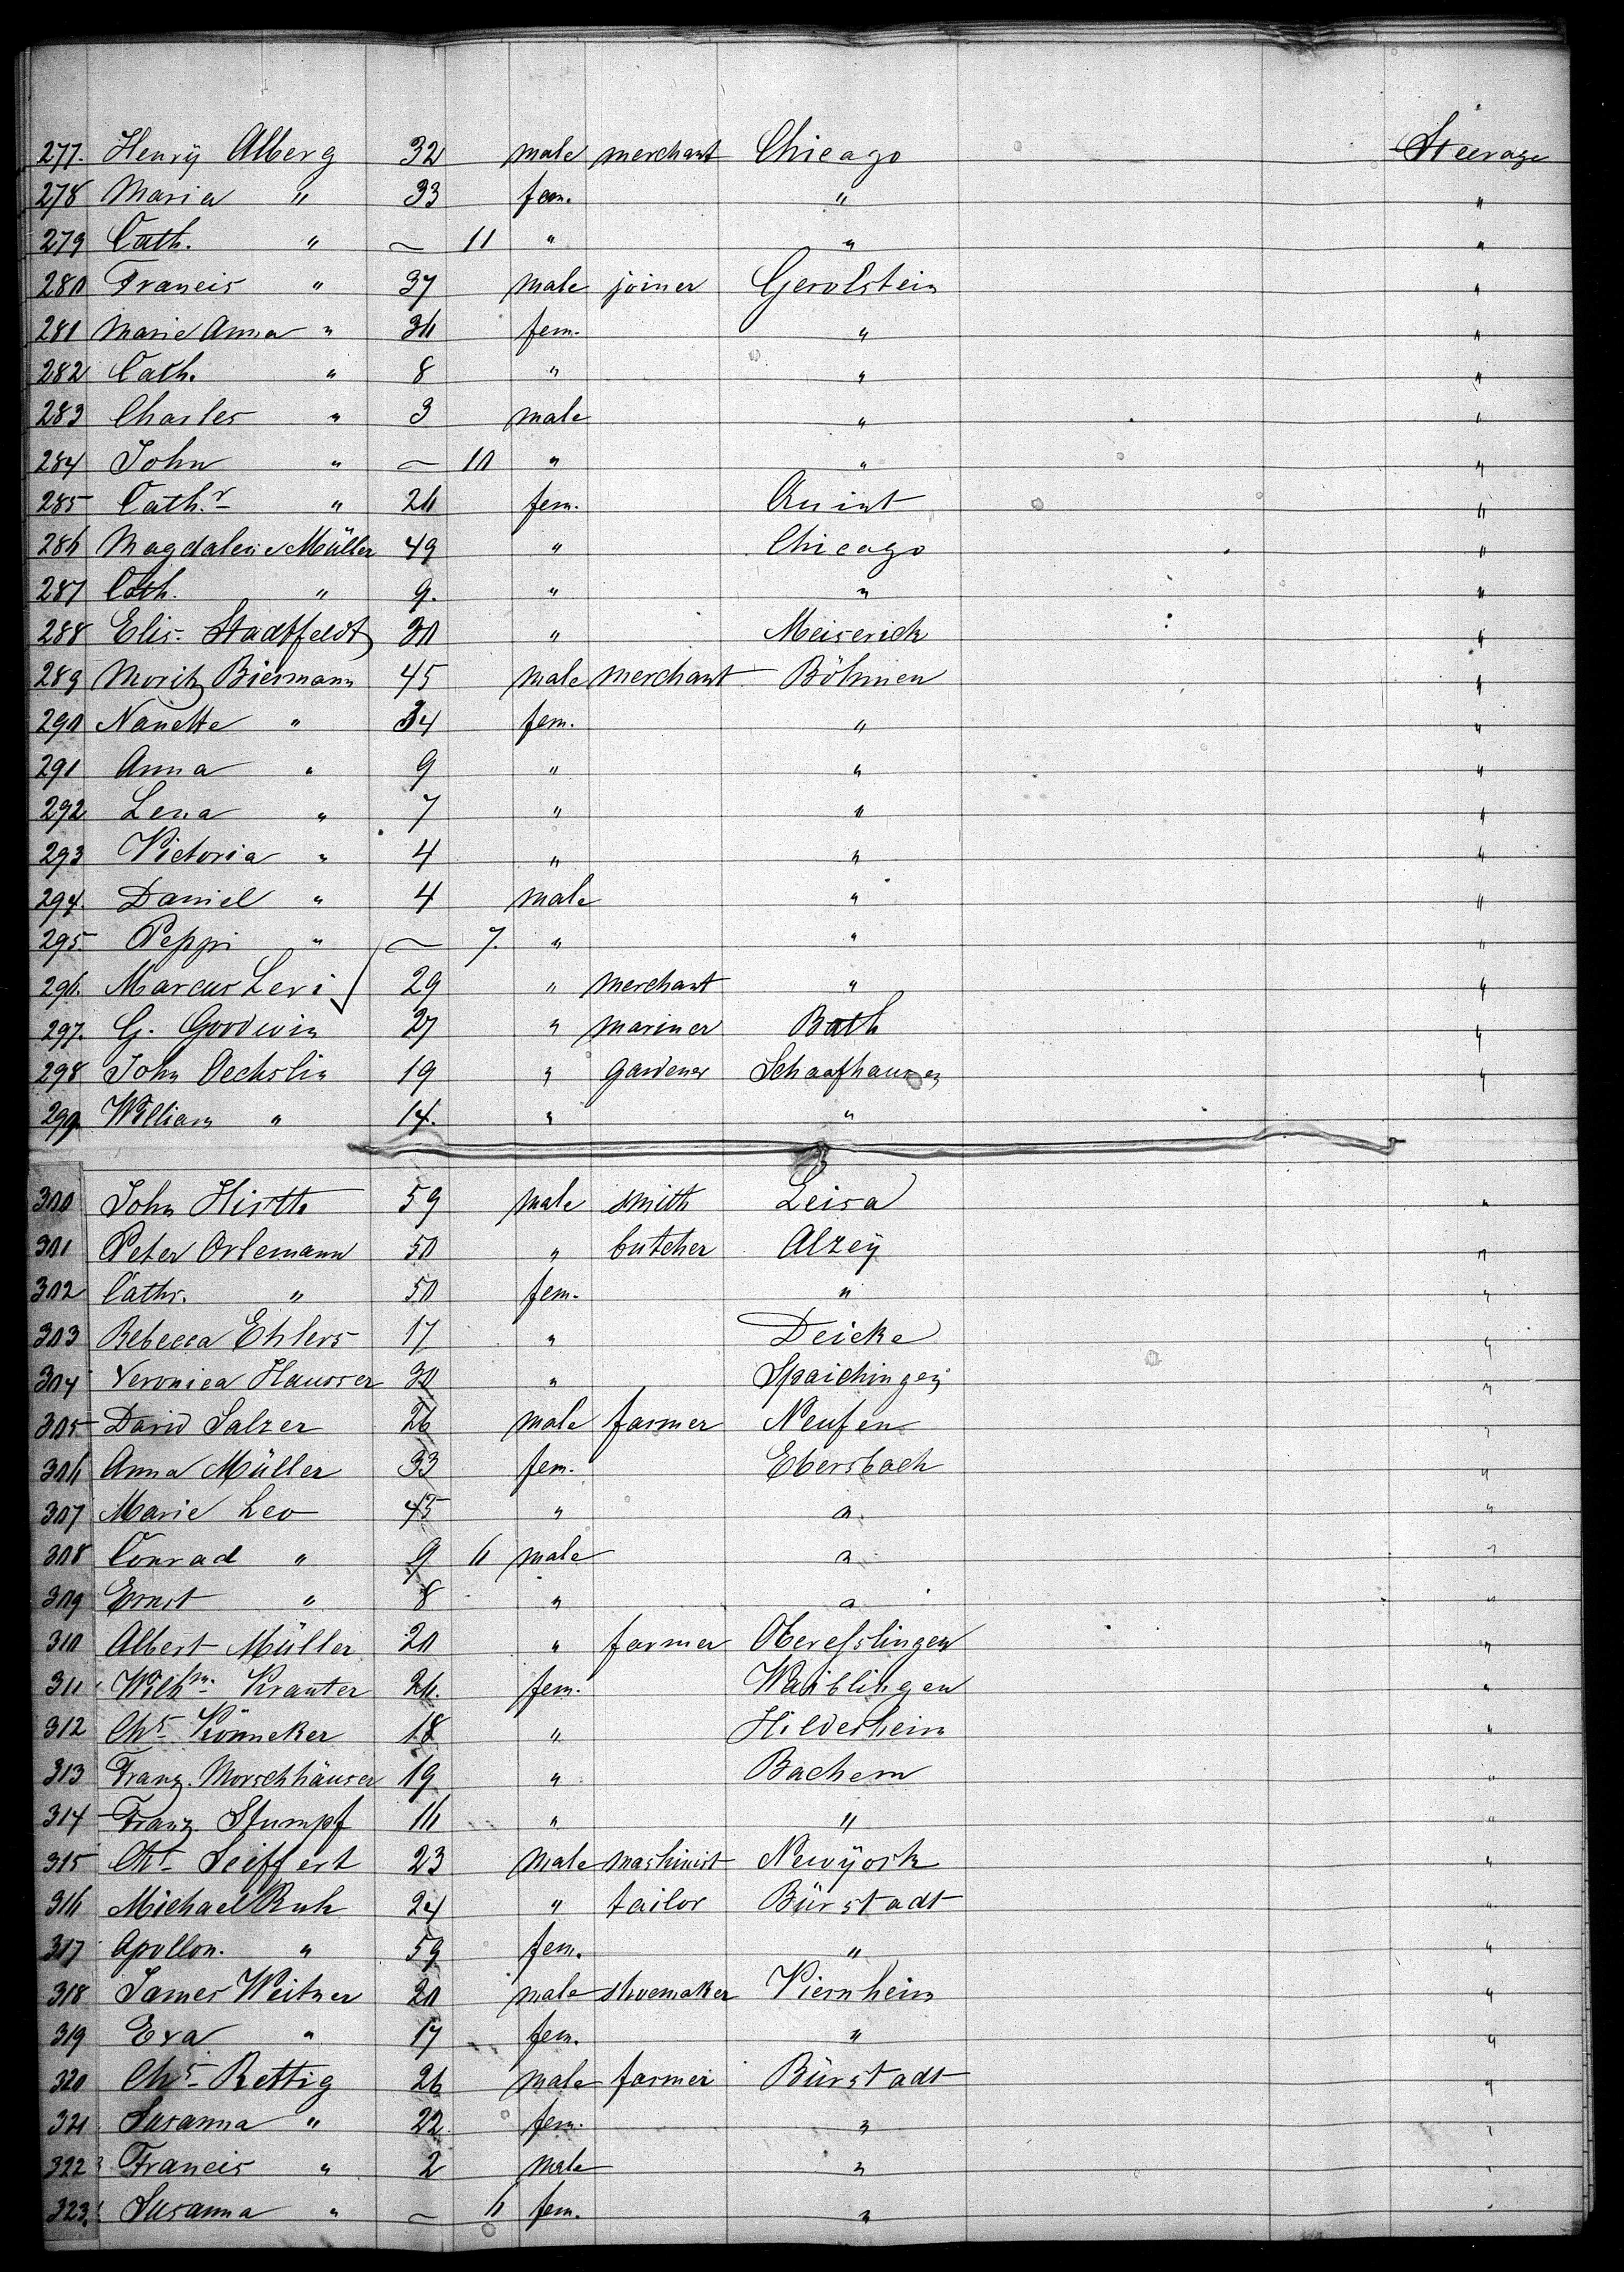 277. Henrÿ Alberg 32 male merchant Chicago Steerage
278 Maria " 33 fem. " "
279 Cath. " — 11 " " "
280 Francis " 37 male joiner Gerolstein "
281 Marie Anna " 36 fem. " "
282 Cath. " 8 " " "
283 Charles " 3 male " "
284 John " — 10 " " "
285 Cath.r " 26 fem. Quint "
286 Magdalene Müller 49 " Chicago "
287 Cath. " 9. " " "
288 Elis. Stadtfeldt 30 " Meiserich "
289 Moritz Biermann 45 male merchant Böhmen "
290 Nanette " 34 fem. " "
291 Anna " 9 " " "
292 Lena " 7 " " "
293 Victoria " 4 " " "
294. Daniel " 4 male " "
295. Peppi " — 7. " " "
296. Marcus Levi 29 " merchant " "
297. G. Goodwin 27 " mariner Bath "
298 John Oechslin 19 " gardener Schaafhausen "
299. William " 14. " "
300 John Hirth 59 male smith Leisa "
301 Peter Orlemann 50 " butcher Alzeÿ "
302 Cathr. " 50 fem. " "
303 Rebecca Ehlers 17 " Deicke "
304 Veronica Hausser 30 " Spaichingen "
305 David Salzer 26 male farmer Neufen "
306 Anna Müller 33 fem. Ebersbach "
307 Marie Leo 45 " " "
308 Conrad " 9 6 male " "
309 Ernst " 8 " " "
310 Albert Müller 20 " farmer Oberesslingen "
311 Wilhm. Krauter 26. fem. Waiblingen "
312 Chs Könneker 18 " Hildesheim "
313 Franz. Morschhäuser 19 " Bachem "
314 Franz. Stumpf 16 " " "
315 Cht Seiffert 23 male mashinist Newÿork "
316 Michael Ruh 24 " tailor Bürstadt "
317 Apollon. " 59 fem. " "
318 James Weitner 20 male shoemaker Viernheim "
319 Eva " 17 fem. " "
320 Chs Rettig 26 male farmer Bürstadt "
321 Susanna " 22 fem. " "
322 Francis " 2 male " "
323. Susanna " — 6 fem. " "